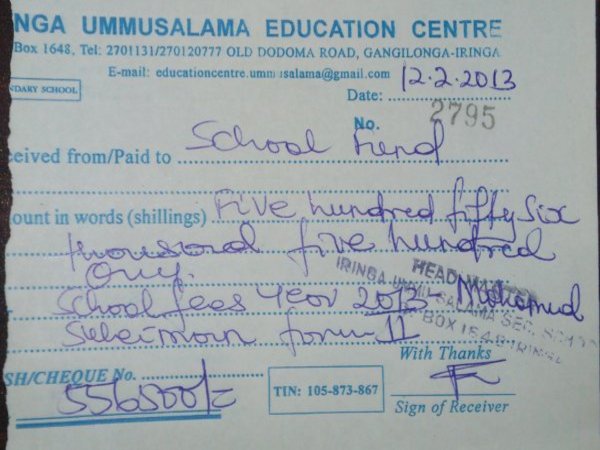 NGA UMMUSALAMA EDUCATION CENTRE
Box 1648, Tel: 2701131/270120777 OLD DODOMA ROAD, GANGILONGA-IRINGA
E-mail: educationcentre.ummusalama@gmail.com
NDARY SCHOOL
Date: 12.2.2013
No. 2795
eived from/Paid to School Fund
ount in words (shillings) Five hundred fiffty six
thousand five hundred
Only.
School fees Year 2013 - Mohamud
Suleiman form 11
HEADMASTER
IRINGA UMMU SALAMA SEC. SCHO
BOX 1648 IRINGA
With Thanks
SH/CHEQUE No.
556500/=
TIN: 105-873-867
Sign of Receiver